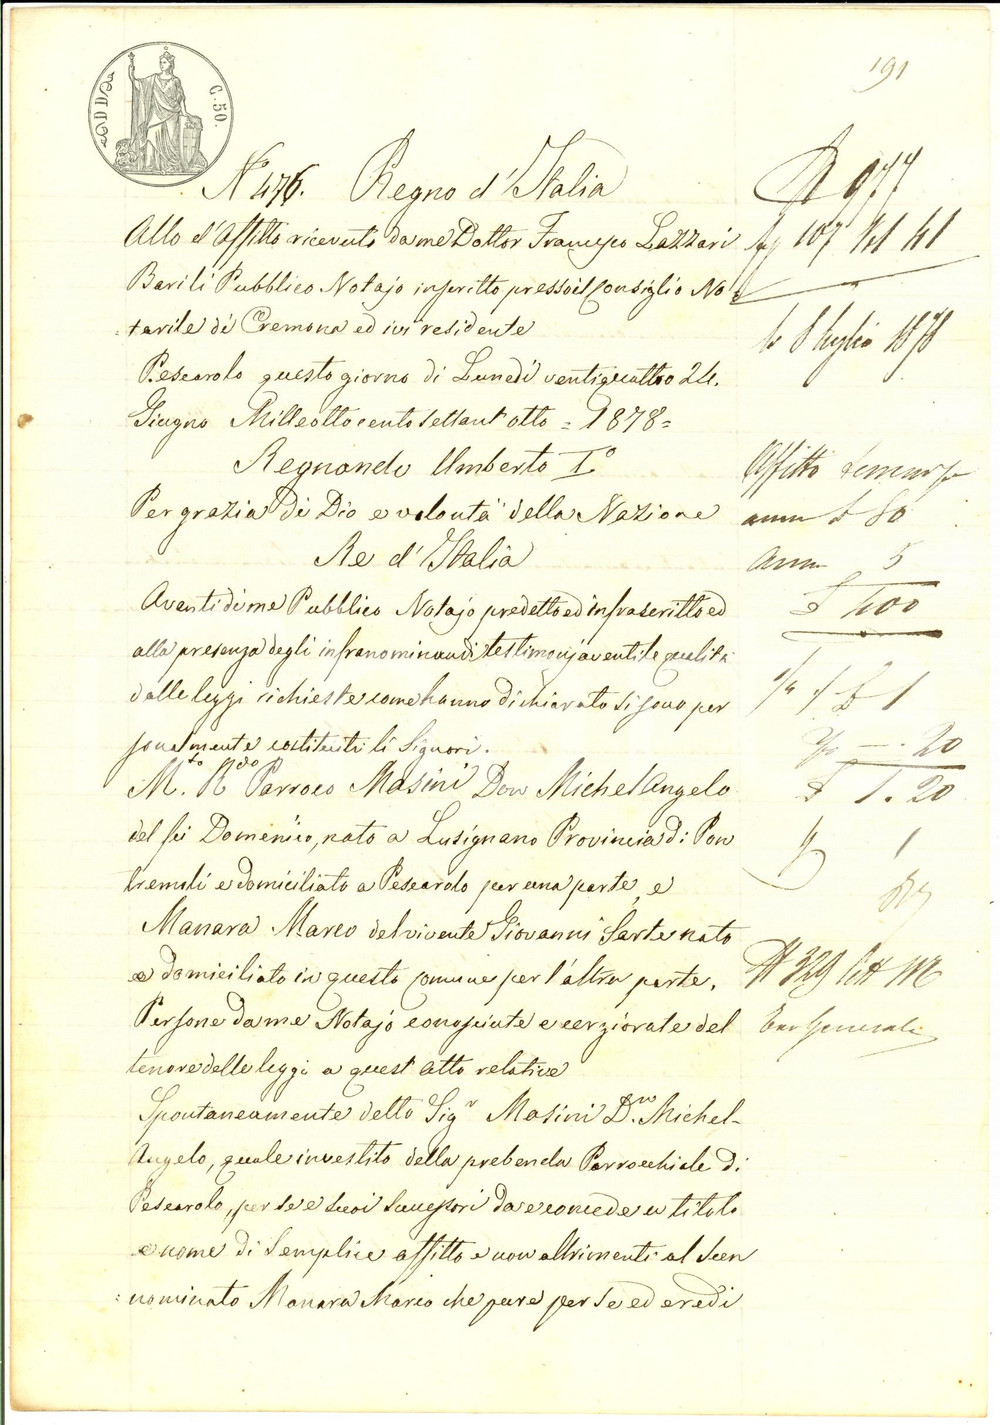 191
C. 50.
N.º 476. Regno d'Italia
Atto d'Affitto ricevuto da me Dottor Francesco Lazzari
Barili Pubblico Notajo inscritto presso il Consiglio No=
=tarile di Cremona ed ivi residente
Pescarolo questo giorno di Lunedì ventiquattro 24.
Giugno Milleottocentosettant'otto = 1878 =
Regnando Umberto Iº
Per grazia di Dio e volontà della Nazione
Re d'Italia
Aventi di me Pubblico Notajo predetto ed infrascritto ed
alla presenza degli infranominandi testimonj aventi le qualità
dalle leggi richieste come hanno dichiarato si sono per
sonalmente costituiti li Signori.
M.to R.do Parroco Masini Don Michel'Angelo
del fu Domenico, nato a Lusignano Provincia di Pon
tremoli e domiciliato a Pescarolo per una parte, e
Manara Marco del vivente Giovanni Sarte nato
e domiciliato in questo Comune per l'altra parte.
Persone da me Notajo conosciute e cerziorate del
tenore delle leggi a quest'atto relative
Spontaneamente detto Sig.r Masini D.n Michel-
Angelo, quale investito della prebenda Parrocchiale di
Pescarolo, per se e suoi successori da e concede a titolo
e nome di semplice affitto e non altrimenti al suen
=nominato Manara Marco che pure per se ed eredi
N 977
107 Vol 41
li 8 luglio 1878
Affitto
annu £ 80
Anni 5
£ 400
£ 1
20
£ 1.20
1
N 329 Lett M